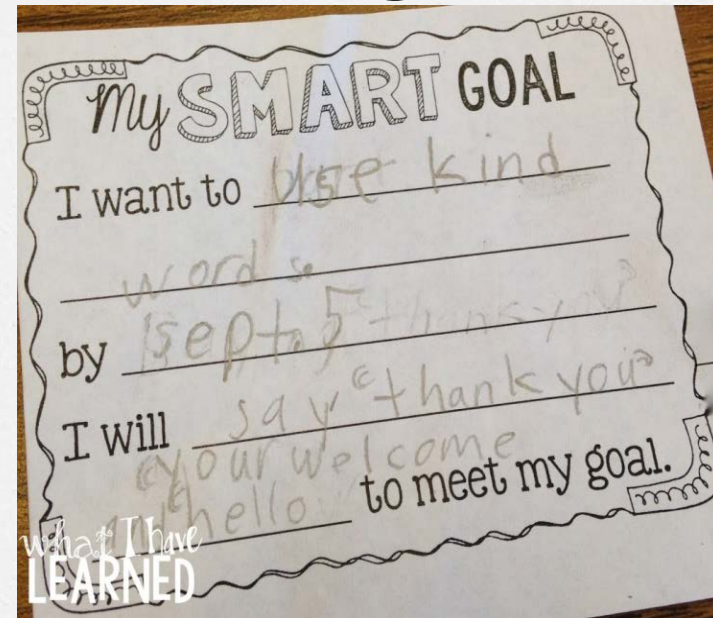 My SMART GOAL
I want to use kind
words
by sept. 5
I will say "thank you"
"your welcome
"hello to meet my goal.
what I have
LEARNED